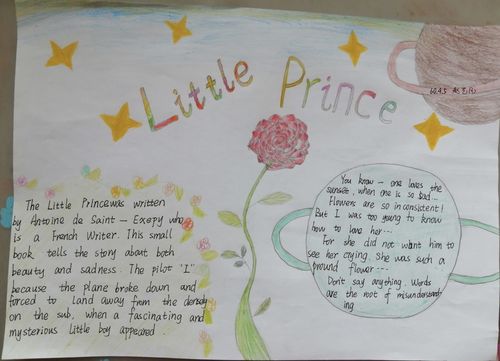 Little Prince
The Little Prince was written
by Antoine de Saint - Exepy who
is a French Writer. This small
book tells the story about both
beauty and sadness. The pilot "I"
because the plane broke down and
forced to land away from the
on the sub, when a fascinating and
mysterious little boy appeared.
You know - one loves the
sunset, when one is so sad...
Flowers are so inconsistent!
But I was too young to know
how to love her---
For she did not want him to
see her crying. She was such a
pround flower----
Don't say anything. Words
are the root of misunderstand
ing